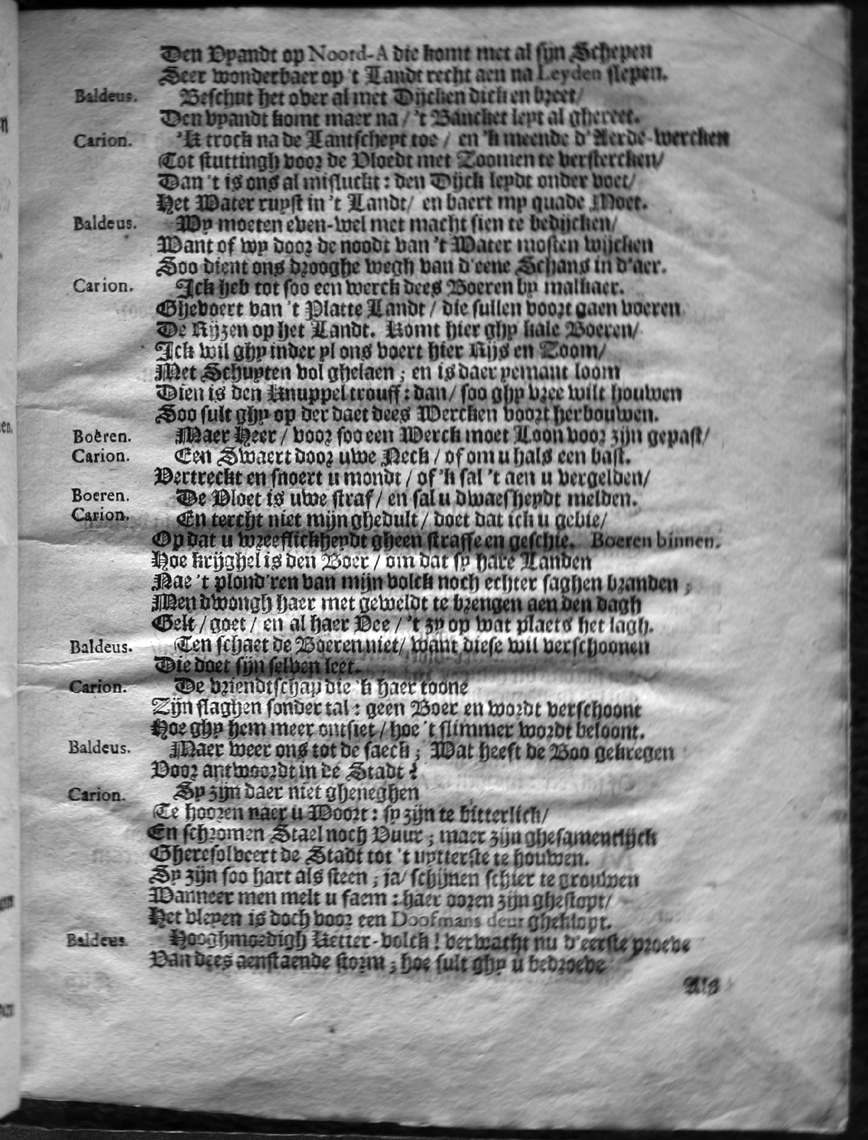 Den Vyandt op Noord-A die komt met al sijn Schepen
Seer wonderbaer op 't Landt recht aen na Leyden slepen.
Baldeus. Beschut het over al met Dijcken dick en breet/
Den vyandt komt maer na / 't Bancket leyt al ghereet.
Carion. 'K trock na de Lantscheyt toe / en 'k meende d'Aerde-wercken
Tot stuttingh voor de Vloedt met Zoomen te verstercken/
Dan 't is ons al misluckt : den Dijck leydt onder voet/
Het Water ruyst in 't Landt/ en baert my quade Moet.
Baldeus. Wy moeten even-wel met macht sien te bedijcken/
Want of wy door de noodt van 't Water mosten wijcken
Soo dient ons drooghe wegh van d'eene Schans in d'aer.
Carion. Ick heb tot soo een werck dees Boeren by malkaer.
Ghevoert van 't Platte Landt / die sullen voort gaen voeren
De Rijzen op het Landt. Komt hier ghy kale Boeren/
Ick wil ghy inder yl ons voert hier Rijs en Zoom/
Met Schuyten vol ghelaen ; en is daer yemant loom
Dien is den Knuppel trouff : dan/ soo ghy vree wilt houwen
Soo sult ghy op der daet dees Wercken voort herbouwen.
Boëren. Maer Heer / voor soo een Werck moet Loon voor zijn gepast/
Carion. Een Swaert door uwe Neck / of om u hals een bast.
Vertreckt en snoert u mondt / of 'k sal 't aen u vergelden/
Boeren. De Vloet is uwe straf / en sal u dwaesheydt melden.
Carion. En tercht niet mijn ghedult / doet dat ick u gebie/
Op dat u wreeflickheydt gheen straffe en geschie. Boeren binnen.
Hoe krijghel is den Boer / om dat sy hare Landen
Nae 't plond'ren van mijn volck noch echter saghen branden ;
Men dwongh haer met geweldt te brengen aen den dagh
Gelt / goet / en al haer Vee / 't zy op wat plaets het lagh.
Baldeus. Ten schaet de Boeren niet/ want diese wil verschoonen
Die doet sijn selven leet.
Carion. De vriendtschap die 'k haer toone
Zijn slaghen sonder tal : geen Boer en wordt verschoont
Hoe ghy hem meer ontsiet / hoe 't slimmer wordt beloont.
Baldeus. Maer weer ons tot de saeck ; Wat heeft de Boo gekregen
Voor antwoordt in de Stadt ?
Carion. Sy zijn daer niet gheneghen
Te hooren naer u Woort : sy zijn te bitterlick/
En schromen Stael noch Vuur ; maer zijn ghesamentlijck
Gheresolveert de Stadt tot 't uytterste te houwen.
Sy zijn soo hart als steen ; ja/ schijnen schier te grouwen
Wanneer men melt u faem : haer ooren zijn ghestopt/
Het vleyen is doch voor een Doofmans deur gheklopt.
Baldeus. Hooghmoedigh Ketter-volck ! verwacht nu d'eerste proeve
Van dees aenstaende storm ; hoe sult ghy u bedroeve
Als